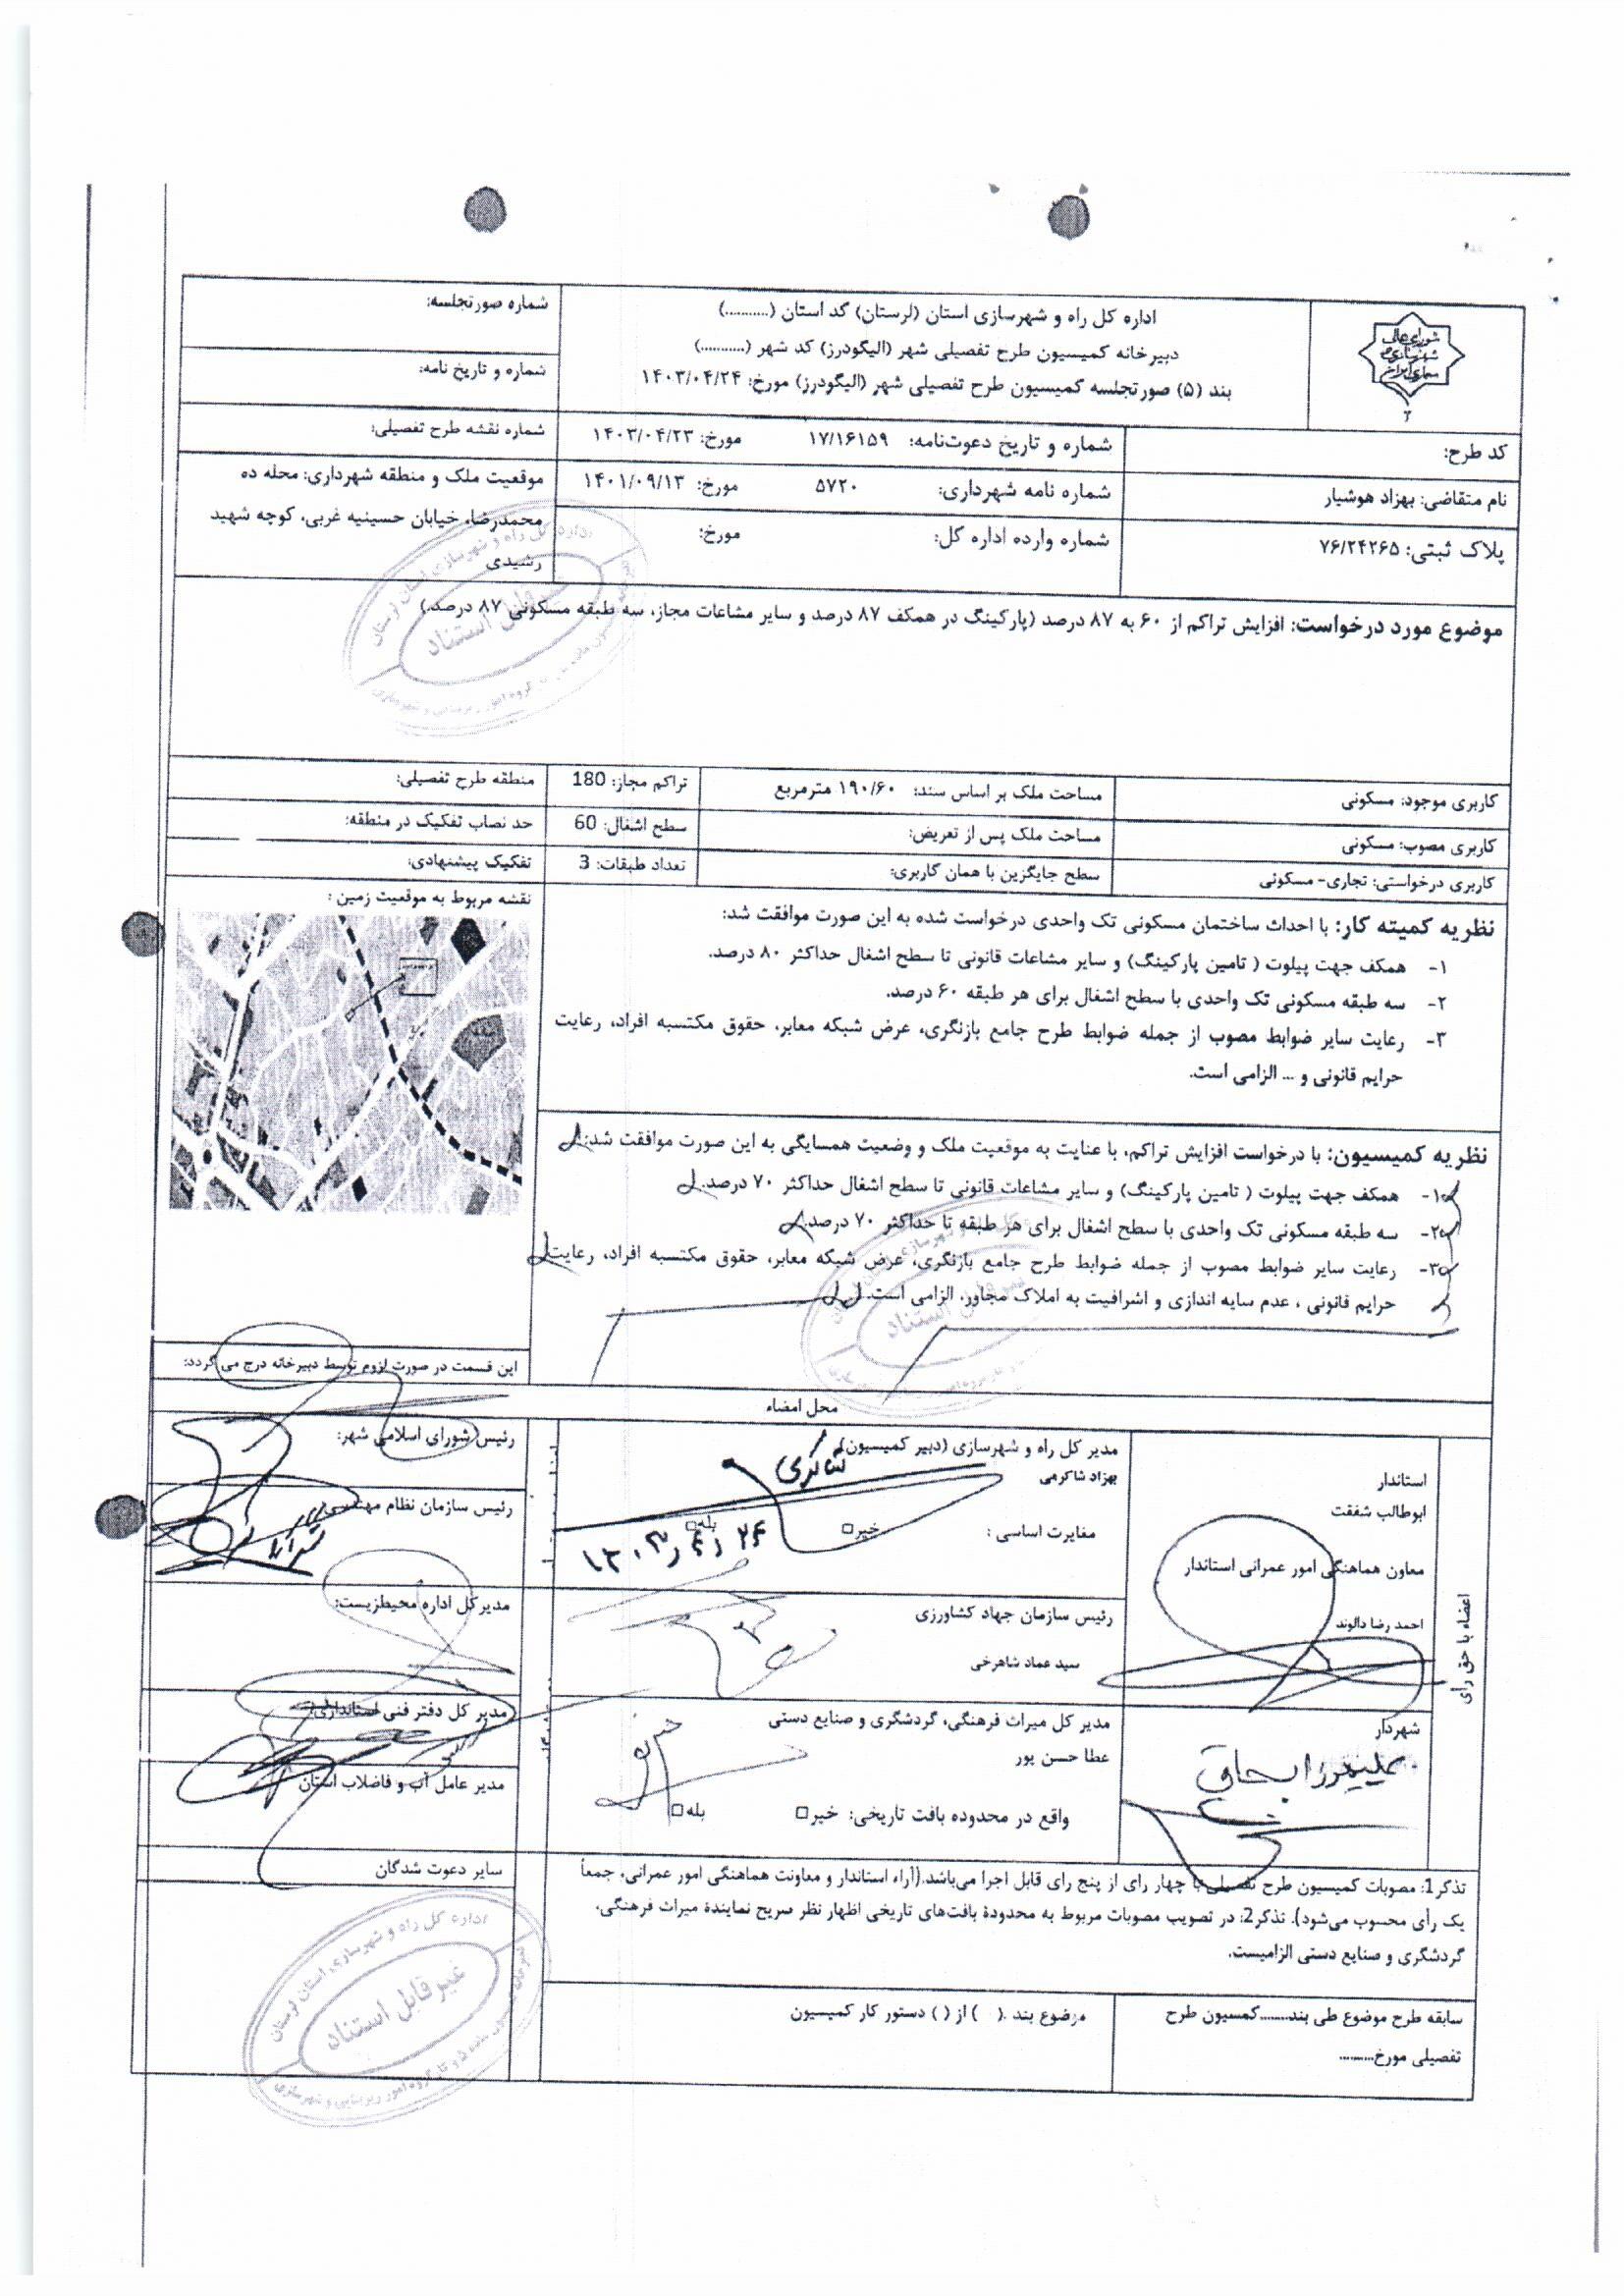 شورای عالی
شهرسازی و
معماری ایران
اداره کل راه و شهرسازی استان (لرستان) کد استان (..........)
دبیرخانه کمیسیون طرح تفصیلی شهر (الیگودرز) کد شهر (..........)
بند (۵) صورتجلسه کمیسیون طرح تفصیلی شهر (الیگودرز) مورخ: ۱۴۰۳/۰۴/۲۴
شماره صورتجلسه:
شماره و تاریخ نامه:
کد طرح:
شماره و تاریخ دعوت‌نامه: ۱۷/۱۶۱۵۹ مورخ: ۱۴۰۳/۰۴/۲۳
شماره نقشه طرح تفصیلی:
نام متقاضی: بهزاد هوشیار
شماره نامه شهرداری: ۵۷۲۰ مورخ: ۱۴۰۱/۰۹/۱۳
موقعیت ملک و منطقه شهرداری: محله ده
محمدرضا، خیابان حسینیه غربی، کوچه شهید
رشیدی
پلاک ثبتی: ۷۶/۲۴۲۶۵
شماره وارده اداره کل: مورخ:
موضوع مورد درخواست: افزایش تراکم از ۶۰ به ۸۷ درصد (پارکینگ در همکف ۸۷ درصد و سایر مشاعات مجاز، سه طبقه مسکونی ۸۷ درصد.)
کاربری موجود: مسکونی
مساحت ملک بر اساس سند: ۱۹۰/۶۰ مترمربع
تراکم مجاز: 180
منطقه طرح تفصیلی:
کاربری مصوب: مسکونی
مساحت ملک پس از تعریض:
سطح اشغال: 60
حد نصاب تفکیک در منطقه:
کاربری درخواستی: تجاری- مسکونی
سطح جایگزین با همان کاربری:
تعداد طبقات: 3
تفکیک پیشنهادی:
نظریه کمیته کار: با احداث ساختمان مسکونی تک واحدی درخواست شده به این صورت موافقت شد:
۱- همکف جهت پیلوت ( تامین پارکینگ) و سایر مشاعات قانونی تا سطح اشغال حداکثر ۸۰ درصد.
۲- سه طبقه مسکونی تک واحدی با سطح اشغال برای هر طبقه ۶۰ درصد.
۳- رعایت سایر ضوابط مصوب از جمله ضوابط طرح جامع بازنگری، عرض شبکه معابر، حقوق مکتسبه افراد، رعایت
حرایم قانونی و ... الزامی است.
نقشه مربوط به موقعیت زمین :
نظریه کمیسیون: با درخواست افزایش تراکم، با عنایت به موقعیت ملک و وضعیت همسایگی به این صورت موافقت شد:
۱- همکف جهت پیلوت ( تامین پارکینگ) و سایر مشاعات قانونی تا سطح اشغال حداکثر ۷۰ درصد.
۲- سه طبقه مسکونی تک واحدی با سطح اشغال برای هر طبقه تا حداکثر ۷۰ درصد.
۳- رعایت سایر ضوابط مصوب از جمله ضوابط طرح جامع بازنگری، عرض شبکه معابر، حقوق مکتسبه افراد، رعایت
حرایم قانونی ، عدم سایه اندازی و اشرافیت به املاک مجاور، الزامی است.
این قسمت در صورت لزوم توسط دبیرخانه درج می گردد:
محل امضاء
اعضاء با حق رأی
استاندار
ابوطالب شفقت
معاون هماهنگی امور عمرانی استاندار
احمد رضا دالوند
مدیر کل راه و شهرسازی (دبیر کمیسیون)
بهزاد شاکرمی
مغایرت اساسی : خیر□ بله□
رئیس شورای اسلامی شهر:
رئیس سازمان نظام مهندسی
رئیس سازمان جهاد کشاورزی
سید عماد شاهرخی
مدیرکل اداره محیط‌زیست:
شهردار
مدیر کل میراث فرهنگی، گردشگری و صنایع دستی
عطا حسن پور
واقع در محدوده بافت تاریخی: خیر□ بله□
مدیر کل دفتر فنی استانداری
مدیر عامل آب و فاضلاب استان
سایر دعوت شدگان
تذکر1: مصوبات کمیسیون طرح تفصیلی با چهار رای از پنج رای قابل اجرا می‌باشد.(آراء استاندار و معاونت هماهنگی امور عمرانی، جمعاً
یک رأی محسوب می‌شود). تذکر2: در تصویب مصوبات مربوط به محدودهٔ بافت‌های تاریخی اظهار نظر صریح نمایندهٔ میراث فرهنگی،
گردشگری و صنایع دستی الزامیست.
سابقه طرح موضوع طی بند........کمسیون طرح
تفصیلی مورخ.........
موضوع بند .( ) از ( ) دستور کار کمیسیون
اداره کل راه و شهرسازی استان لرستان
غیر قابل استناد